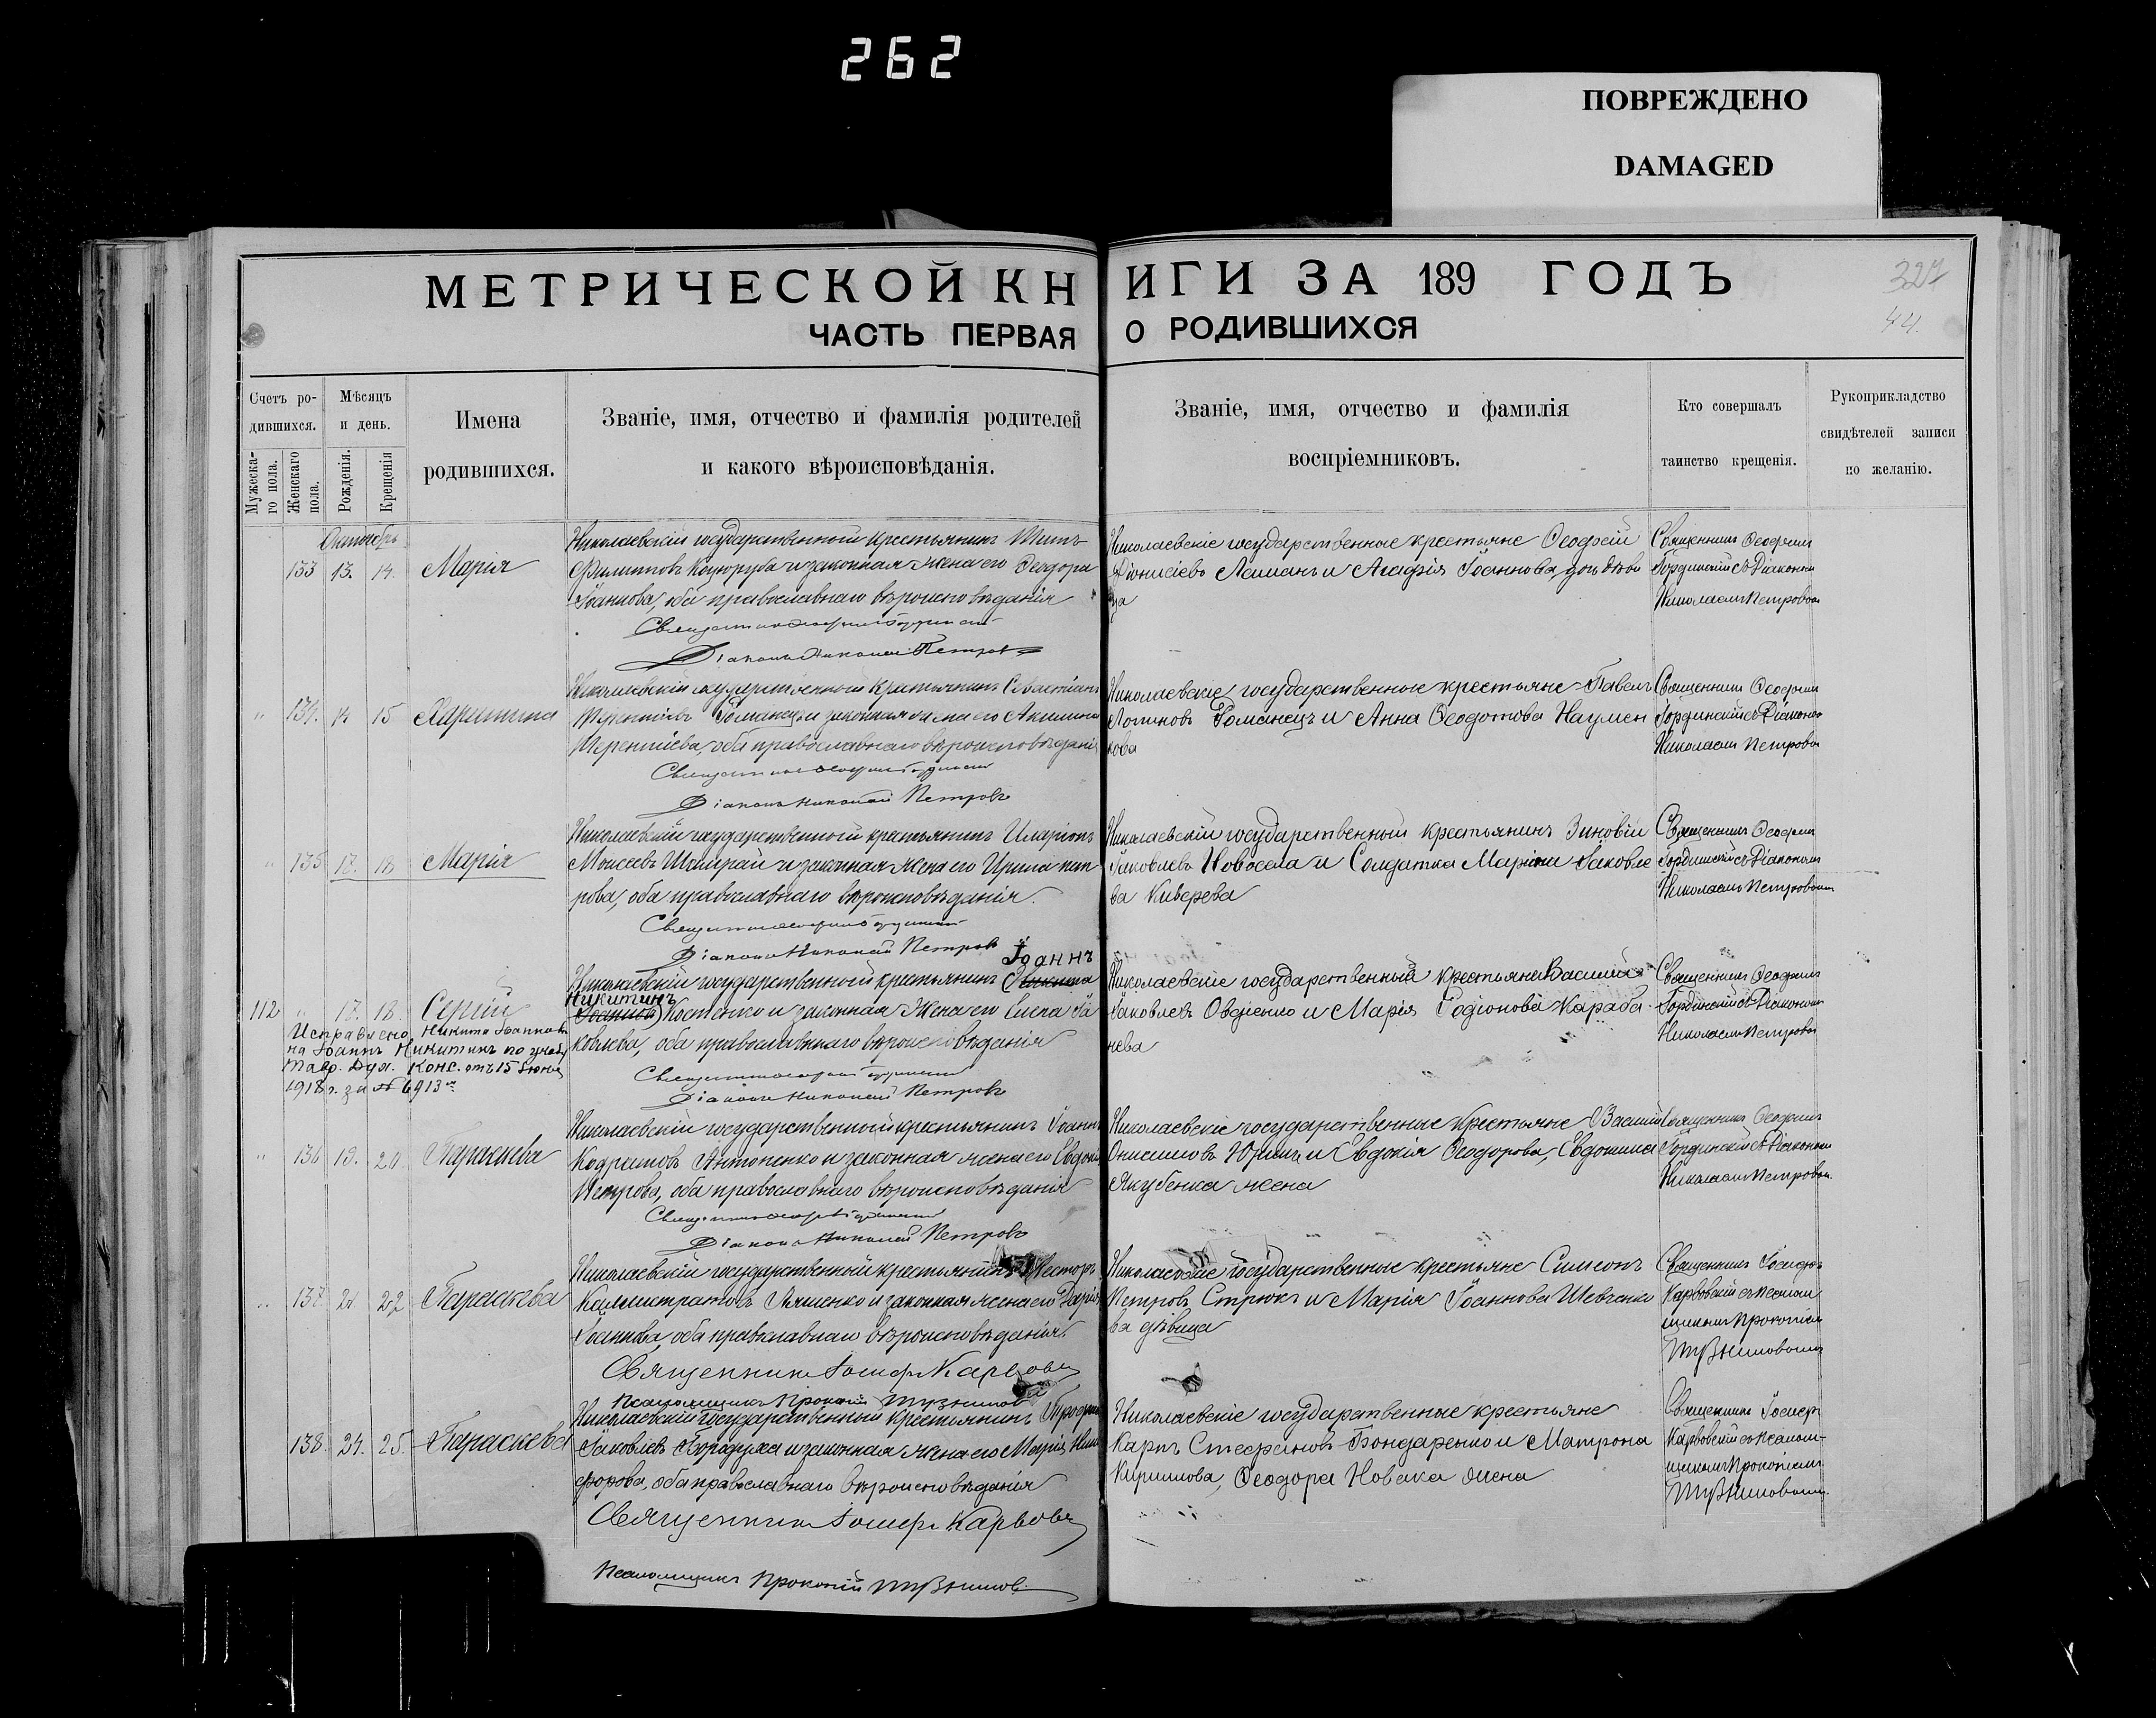 262
ПОВРЕЖДЕНО
DAMAGED
МЕТРИЧЕСКОЙ КНИГИ ЗА 189 ГОДЪ
ЧАСТЬ ПЕРВАЯ О РОДИВШИХСЯ
327
44.
Счетъ ро-
дившихся.
Мужеска-
го пола.
Женскаго
пола.
Мѣсяцъ
и день.
Рожденія.
Крещенія
Имена
родившихся.
Званіе, имя, отчество и фамилія родителей
и какого вѣроисповѣданія.
Званіе, имя, отчество и фамилія
воспріемниковъ.
Кто совершалъ
таинство крещенія.
Рукоприкладство
свидѣтелей записи
по желанію.
Октябрь
133 13. 14. Марія
Николаевскій государственный крестьянинъ Титъ
Филиповъ и законная жена его Ѳеодора
Іоаннова, оба православнаго вѣроисповѣданія
Діаконъ Николай Петровъ
Николаевскіе государственные крестьяне Ѳеофей
Діонисіевъ Лашанъ и Агафія Іоаннова, дѣви
ца
Священникъ Ѳеофилъ
Гординскій съ Діакономъ
Николаемъ Петровымъ
" 134. 14 15 Харитина
Николаевскій государственный крестьянинъ Севастіанъ
Терентіевъ Романецъ и законная жена его Акилина
Терентіева, оба православнаго вѣроисповѣданія
Діаконъ Николай Петровъ
Николаевскіе государственные крестьяне Павелъ
Логиновъ Романецъ и Анна Ѳеодотова Наумен
кова
Священникъ Ѳеофилъ
Гординскій съ Діакономъ
Николаемъ Петровымъ
" 135 17. 18 Марія
Николаевскій государственный крестьянинъ Иларіонъ
Моисеевъ и законная жена его Ирина Пет
рова, оба православнаго вѣроисповѣданія.
Діаконъ Николай Петровъ
Николаевскій государственный крестьянинъ Зиновій
Іаковлевъ Новосела и Солдатка Марія Іаковле
ва Киверева
Священникъ Ѳеофилъ
Гординскій съ Діакономъ
Николаемъ Петровымъ
Іоаннъ
112 " 17. 18. Сергій
Николаевскій государственный крестьянинъ Никита
Никитинъ
Іоанновъ Костенко и законная жена его Елена Іа
ковлева, оба православнаго вѣроисповѣданія
Діаконъ Николай Петровъ
Исправлено Никита Іоанновъ
на Іоаннъ Никитинъ по указу
Тавр. Дух. Конс. отъ 15 Іюня
1918 г. за № 6913
Николаевскіе государственный крестьяне Василій
Іаковлевъ Овдіенко и Марія Родіонова Караба
нева
Священникъ Ѳеофилъ
Гординскій съ Діакономъ
Николаемъ Петровымъ
" 136 19. 20. Параскева
Николаевскій государственный крестьянинъ Іоаннъ
Кодратовъ Антоненко и законная жена его
Петрова, оба православнаго вѣроисповѣданія
Діаконъ Николай Петровъ
Николаевскіе государственные крестьяне Василій
Онисимовъ и Евдокія Ѳеодорова, Евдокима
Якубенка жена
Священникъ Ѳеофилъ
Гординскій съ Діакономъ
Николаемъ Петровымъ
" 137 21 22 Параскева
Николаевскій государственный крестьянинъ Несторъ
Каллистратовъ Ляшенко и законная жена его Дарія
Іоаннова, оба православнаго вѣроисповѣданія.
Священникъ Іосифъ
Псаломщикъ Прокопій
Николаевскіе государственные крестьяне Симеонъ
Петровъ Стрюкъ и Марія Іоаннова Шевченко
ва дѣвица
Священникъ Іосифъ
Карвовскій съ псалом
щикомъ Прокопіемъ
138. 24. 25. Параскева
Николаевскій государственный крестьянинъ
Іаковлевъ Бородуха и законная жена его Марія Ники
форова, оба православнаго вѣроисповѣданія
Священникъ Іосифъ
Псаломщикъ Прокопій
Николаевскіе государственные крестьяне
Карпъ Стефановъ Бондаренко и Матрона
Кириллова, Ѳеодора Новака жена
Священникъ Іосифъ
Карвовскій съ псалом-
щикомъ Прокопіемъ